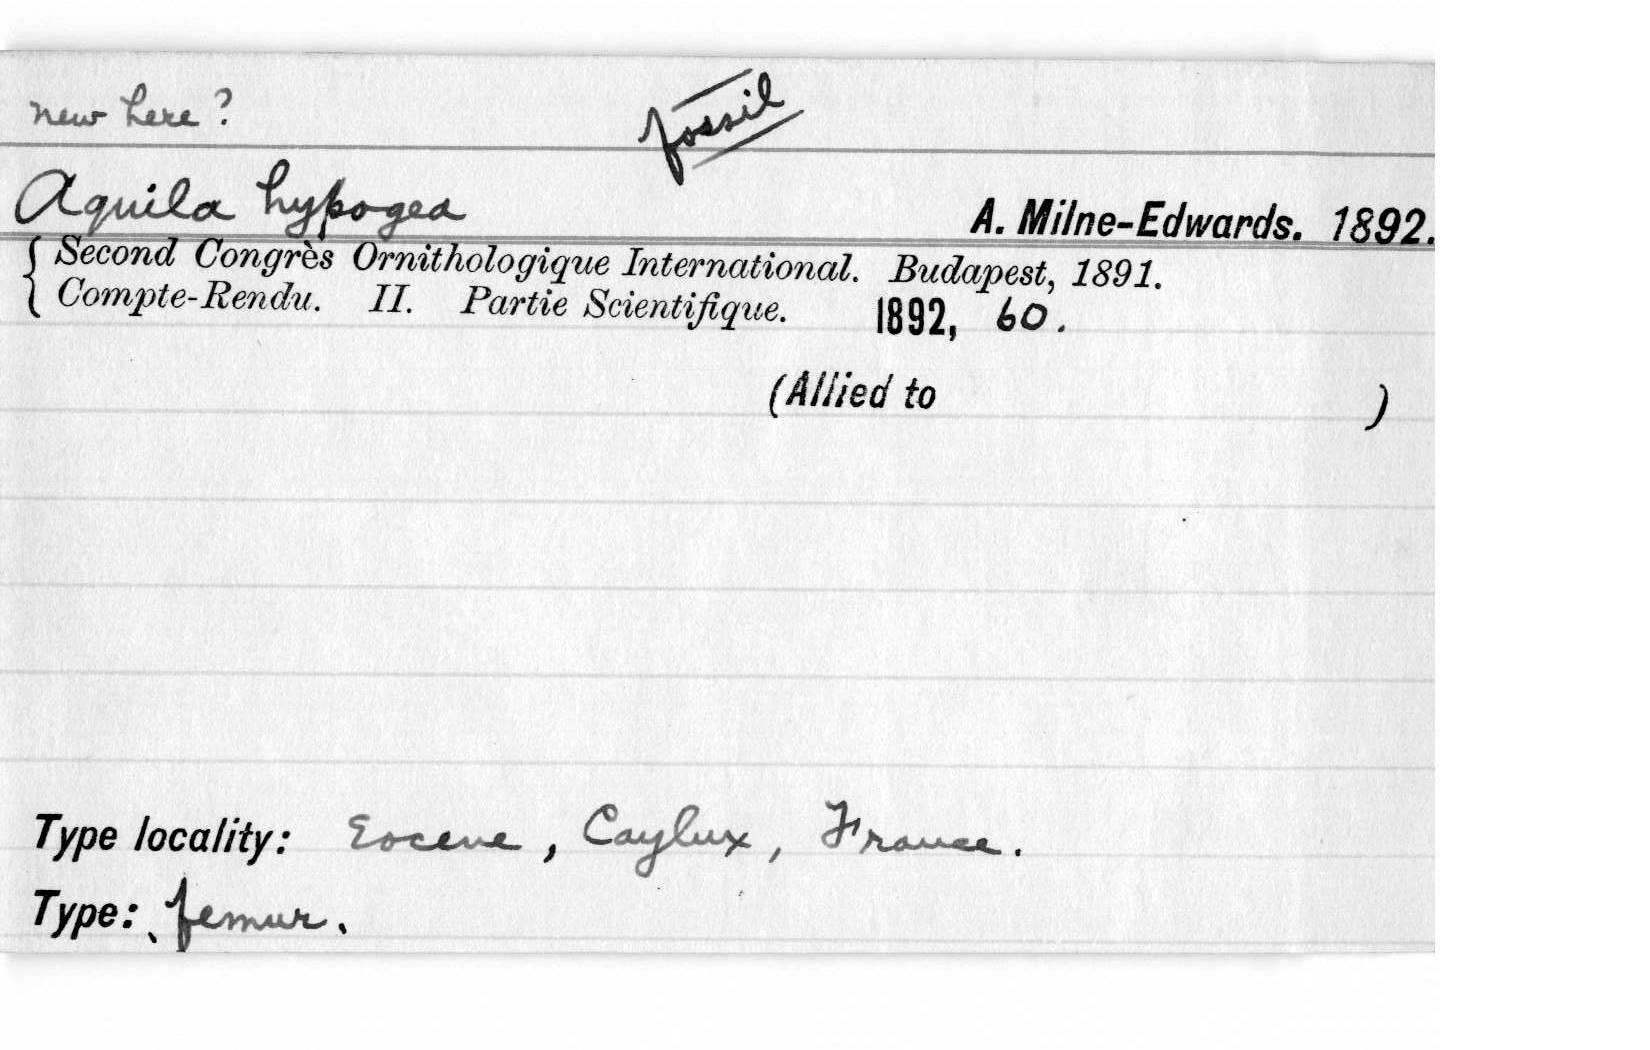 new here?
fossil
Aquila hypogea A. Milne-Edwards. 1892.
Second Congrès Ornithologique International. Budapest, 1891.
Compte-Rendu. II. Partie Scientifique. 1892, 60.
(Allied to )
Type locality: Eocene, Caylux, France.
Type: femur.